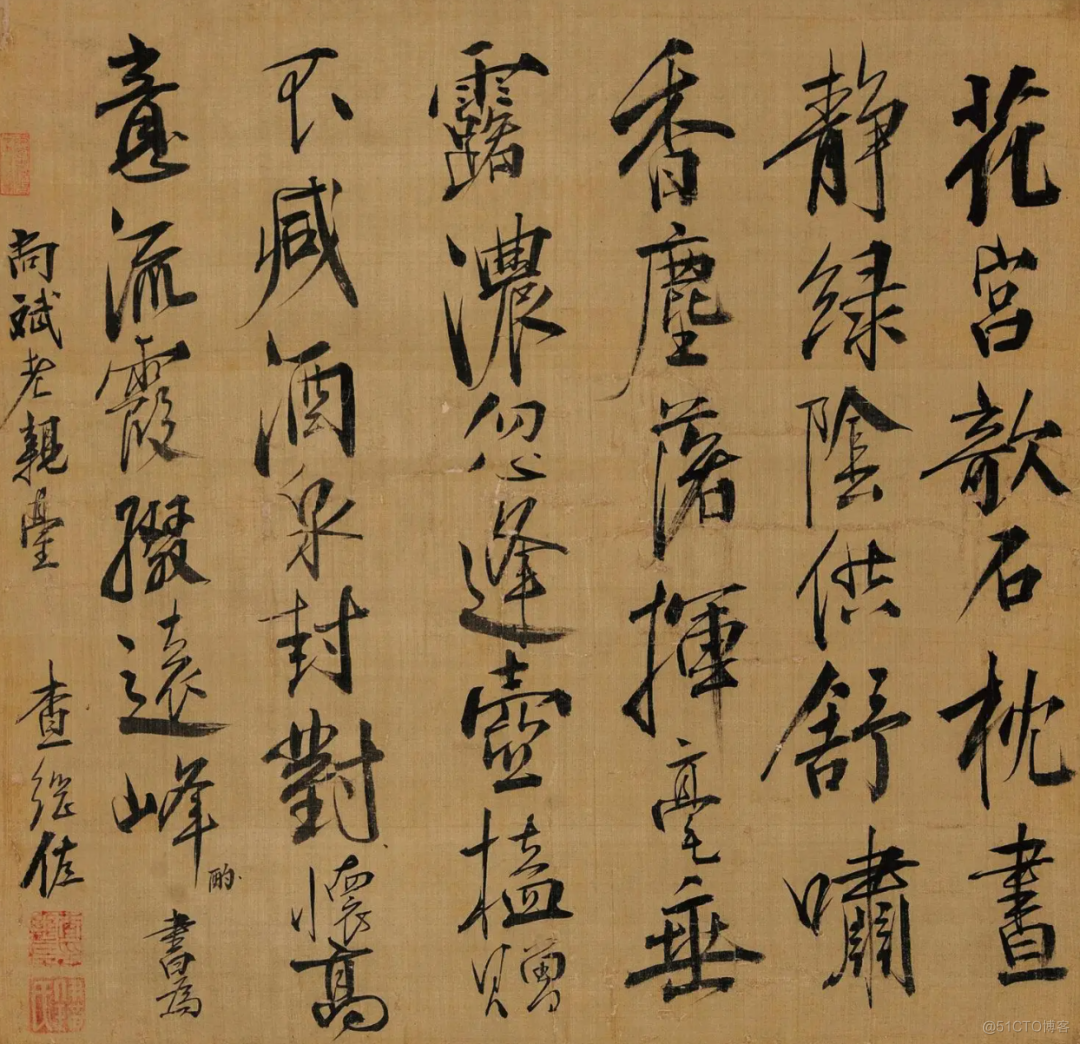 花宮欹石枕晝
靜緑陰供舒嘯
香塵落揮毫垂
露濃忽逢壺榼贈
不減酒泉封對懷高
意流霞綴遠峰 酌 書為
尚斌老親臺 查繼佐
@51CTO博客